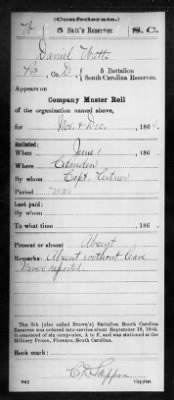 (Confederate.)
W 5 Batt'n Reserves. S.C.
Daniel Watts
Pvt, Co. D, 5 Battalion
South Carolina Reserves.
Appears on
Company Muster Roll
of the organization named above,
for Nov. & Dec., 1864.
Enlisted:
When June 1, 186
Where Camden
By whom Capt. Leitner
Period War
Last paid:
By whom
To what time , 186 .
Present or absent Absent
Remarks: Absent without leave
Never reported.
The 5th (also called Brown's) Battalion South Carolina
Reserves was ordered into service about September 15, 1864.
It consisted of six companies, A to F, and was stationed at the
Military Prison, Florence, South Carolina.
Book mark:
(642)
Copyist.